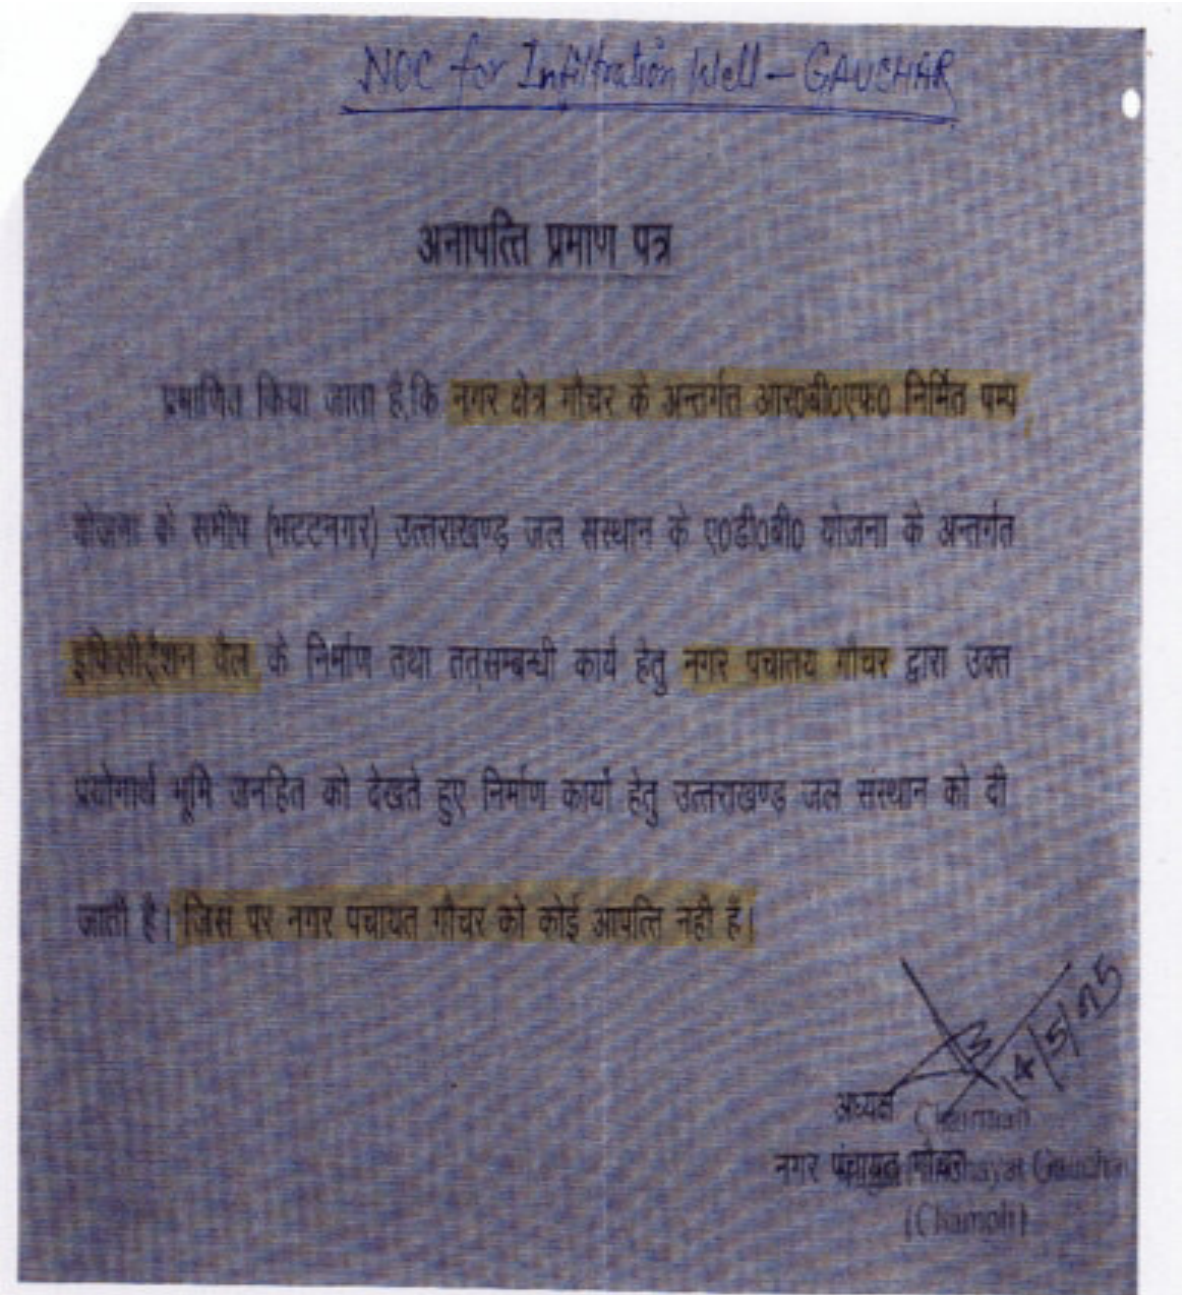 NOC for Infiltration Well - GAUCHAR
अनापत्ति प्रमाण पत्र
प्रमाणित किया जाता है.कि नगर क्षेत्र गौचर के अन्तर्गत आर0बी0एफ0 निर्मित पम्प
योजना के समीप (भटटनगर) उत्तराखण्ड़ जल संस्थान के ए0डी0बी0 योजना के अन्तर्गत
इंफिलीट्रेशन वैल के निर्माण तथा तत्सम्बन्धी कार्य हेतु नगर पचातय गौचर द्वारा उक्त
प्रयोगार्थ भूमि जनहित को देखते हुए निर्माण कार्यो हेतु उत्तराखण्ड़ जल संस्थान को दी
जाती है। जिस पर नगर पचायत गौचर को कोई आपत्ति नही है।
अध्यक्ष Chairman
नगर पंचायत गौचर
(Chamoli)